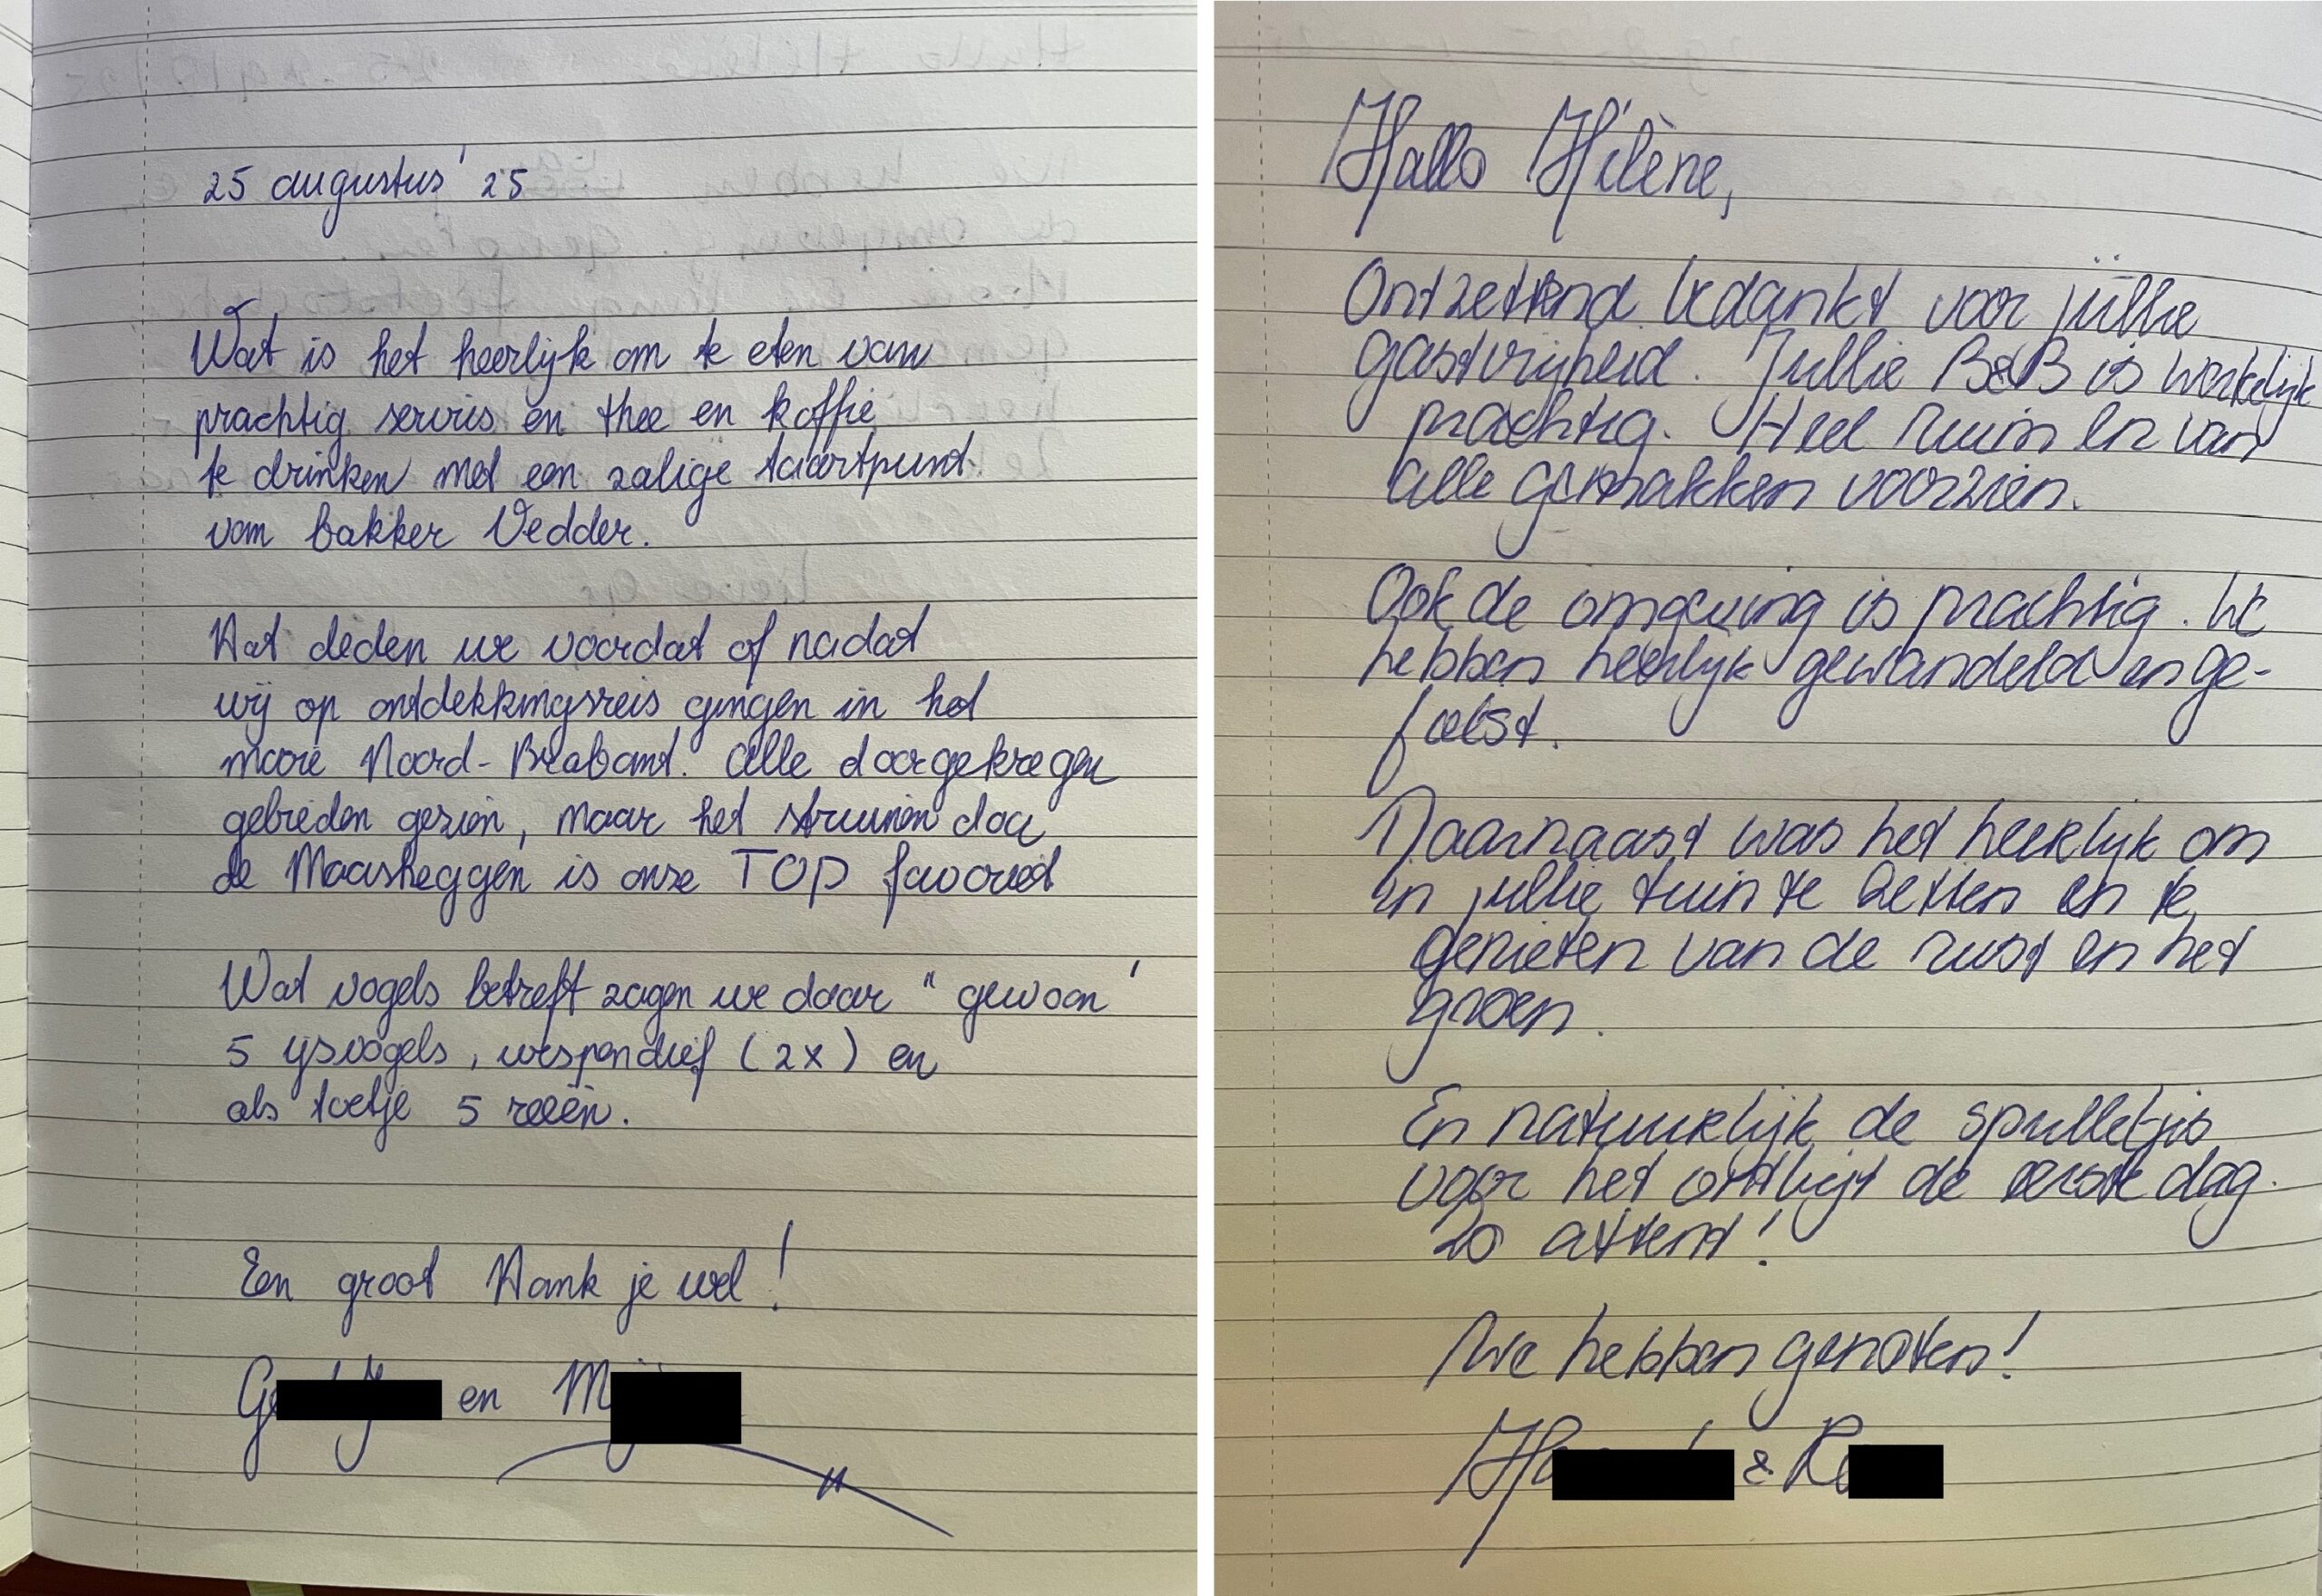 25 augustus '25
Wat is het heerlijk om te eten van
prachtig servies en thee en koffie
te drinken met een zalige taartpunt
van bakker Vedder.
Dat deden we voordat of nadat
wij op ontdekkingsreis gingen in het
mooie Noord-Brabant. Alle doorgekregen
gebieden gezien, maar het struinen door
de Maasheggen is onze TOP favoriet
Wat vogels betreft zagen we daar "gewoon'
5 ijsvogels, wespendief (2x) en
als toetje 5 reeën.
Een groot Dank je wel!
en
Hallo Hélène,
Ontzettend bedankt voor jullie
gastvrijheid. Jullie B&B is werkelijk
prachtig. Heel ruim en van
alle gemakken voorzien.
Ook de omgeving is prachtig. We
hebben heerlijk gewandeld en ge-
fietst.
Daarnaast was het heerlijk om
in jullie tuin te zitten en te
genieten van de rust en het
groen.
En natuurlijk de spulletjes
voor het ontbijt de eerste dag.
Zo attent!
We hebben genoten!
&